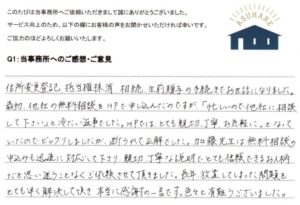 このたびは当事務所へご依頼いただきまして誠にありがとうございました。
サービス向上のため、以下の欄にお客様の声をお聞かせいただければ幸いです。
ご協力のほどよろしくお願いいたします。
ASUHARE
Q1:当事務所へのご感想・ご意見
住所変更登記、抵当権抹消、相続、生前贈与の手続きでお世話になりました。
最初、他社の無料相談をHPで申し込んだのですが「忙しいので他社に相談
して下さい」と冷たい返事でした。HPでは、とても親切、丁寧、お気軽に。となって
いたのでビックリしましたが、断られて正解でした。加藤先生は無料相談の
申込みも迅速に対応して下さり、親切、丁寧な説明でとても信頼できるお人柄
だと思い迷うことなくご依頼させて頂きました。長年放置してしまった問題を
とても早く解決して頂き本当に感謝の一言です。色々と有難うございました。